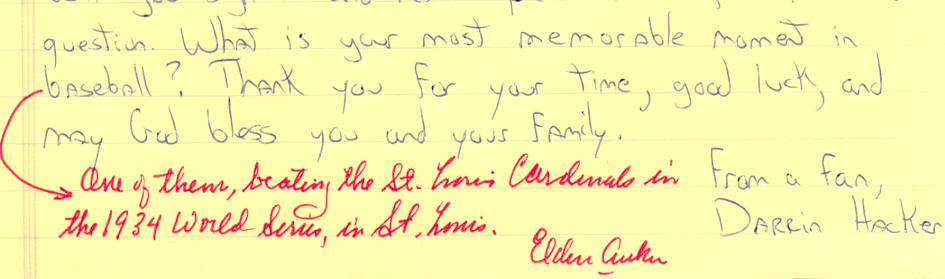 question. What is your most memorable moment in
baseball? Thank you for your time, good luck, and
may God bless you and your family.
One of them, beating the St. Louis Cardinals in
the 1934 World Series, in St. Louis.
From a fan,
Darrin Hacker
Elden Auker